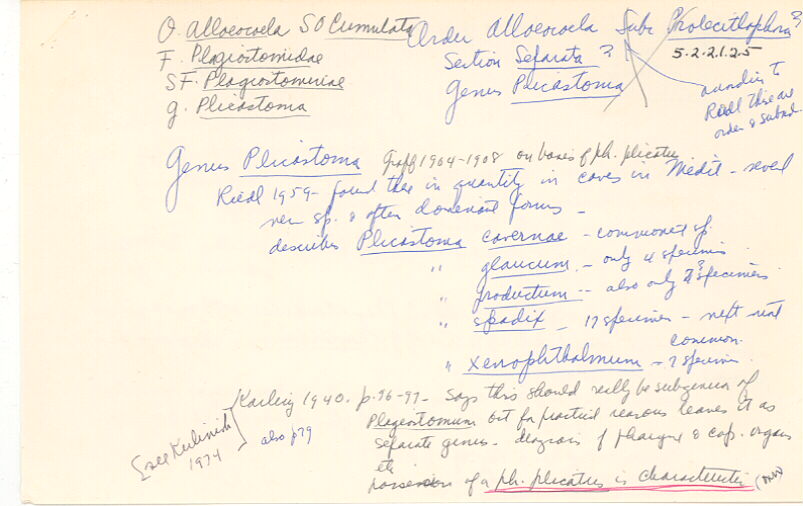 O. Alloeocoela SO Cumulata
F. Plagiostomidae
SF. Plagiostominae
g. Plicastoma
Order Alloeocoela Sub: Prolecithophora?
5.2.2.1.2.5
Section Separata?
Genus Plicastoma
according to
Riedl these are
order & subord.
Genus Plicastoma Graff 1904-1908 on basis of ph. plicatus
Riedl 1959- found these in quantity in caves in Medit - several
new sp. & often dominant forms -
describes Plicastoma cavernae - commonest sp.
" glaucum - only 4 specimens
" productum -- also only specimens
" spadix - 17 specimens - next most
common.
" xenophthalmum - ? specimen
Karling 1940. p. 96-97- Says this should really be subgenus of
Plagiostomum but for practical reasons leaves it as
separate genus - diagnosis of pharynx & cop. organs
etc
possession of a ph. plicatus is characteristic (only)
also p79
[see
1974